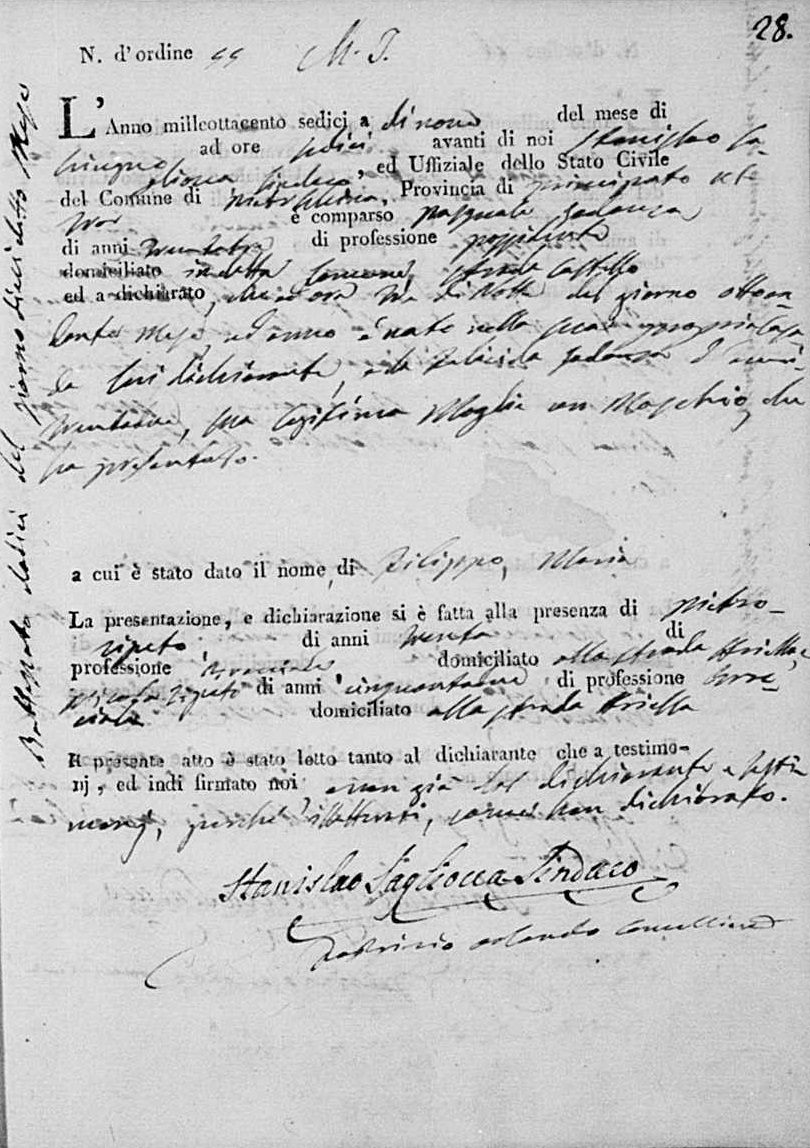 28.
N. d'ordine 55 M. I.
L'Anno millcottacento sedici a di nove del mese di
Giugno ad ore sedici avanti di noi Stanislao Sa-
gliocca Sindaco, ed Uffiziale dello Stato Civile
del Comune di Provincia di Principato ulte-
rior è comparso Pasquale
di anni trentatre di professione
domiciliato in detto Comune, strada Castello
ed a dichiarato, che ad ora tre di Notte del giorno otto
dente Mese, ed anno è nato nella sua propria casa
da lui dichiarante, e da Felicida d'anni
sua legitima Moglie un Maschio, che
ha presentato.
a cui è stato dato il nome di Filippo, Maria
La presentazione, e dichiarazione si è fatta alla presenza di Pietro
ripeto, di anni trenta di
professione Bracciale domiciliato alla strada Ariella, e
Nicola ripeto di anni cinquantadue di professione Brac-
ciale domiciliato alla strada Ariella
Il presente atto è stato letto tanto al dichiarante che a testimo-
nj, ed indi firmato noi non già dal dichiarante e testi
monj, perché illetterati, come han dichiarato.
Stanislao Sagliocca Sindaco
Fabrizio Orlando Cancelliere
Battezzato dieci del giorno dieci detto Mese